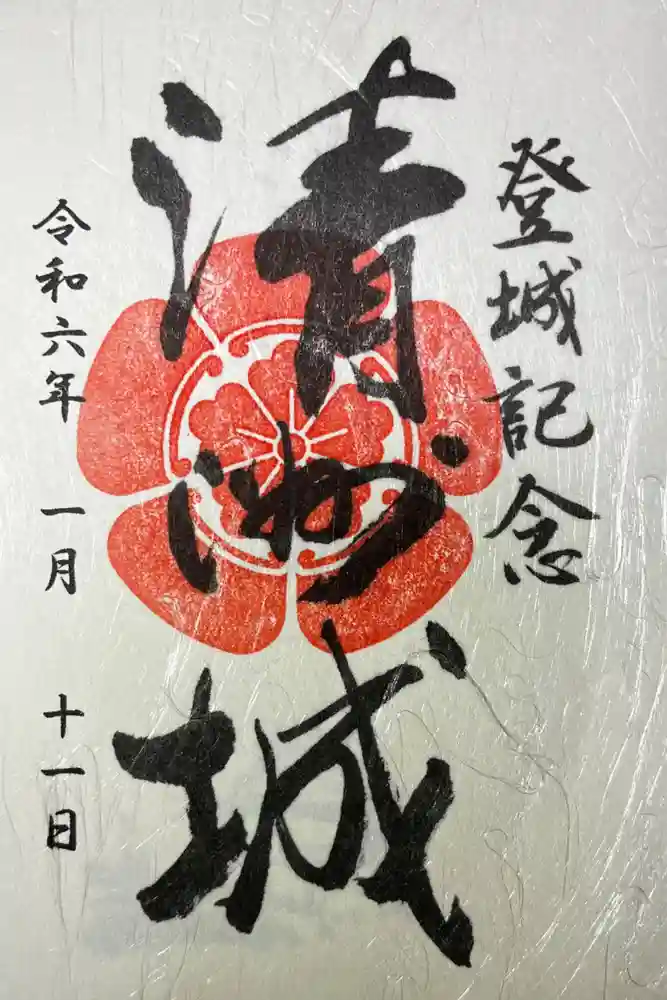 登城記念
清洲城
令和六年 一月 十一日